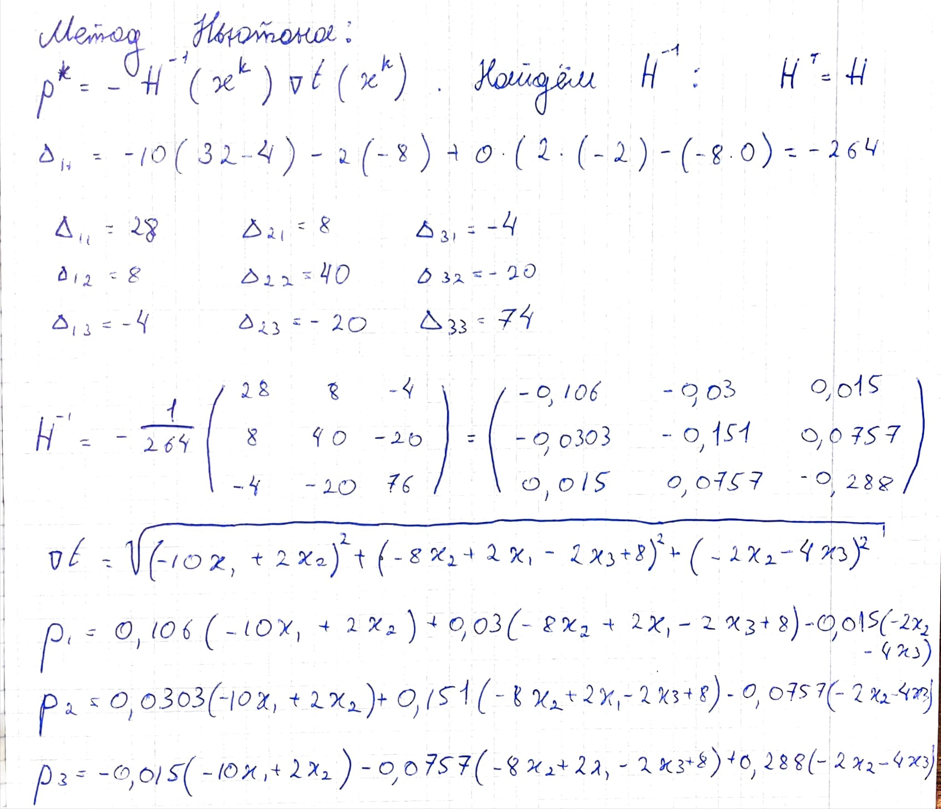 Метод Ньютона:
p^k = - H^-1 (x^k) ∇t (x^k) . Найдём H^-1 : H^T = H
Δ₁₁ = -10(32-4) - 2(-8) + 0·(2·(-2) - (-8·0) = -264
Δ₁₁ = 28 Δ₂₁ = 8 Δ₃₁ = -4
Δ₁₂ = 8 Δ₂₂ = 40 Δ₃₂ = -20
Δ₁₃ = -4 Δ₂₃ = -20 Δ₃₃ = 74
H^-1 = - 1/264 ( 28 8 -4 ) = ( -0,106 -0,03 0,015 )
( 8 40 -20 ) ( -0,0303 -0,151 0,0757 )
( -4 -20 76 ) ( 0,015 0,0757 -0,288 )
∇t = √((-10x₁ + 2x₂)² + (-8x₂ + 2x₁ - 2x₃+8)² + (-2x₂-4x₃)²)
p₁ = 0,106(-10x₁ + 2x₂) + 0,03(-8x₂ + 2x₁ - 2x₃+8) - 0,015(-2x₂
- 4x₃)
p₂ = 0,0303(-10x₁ + 2x₂) + 0,151(-8x₂+2x₁-2x₃+8) - 0,0757(-2x₂-4x₃)
p₃ = -0,015(-10x₁+2x₂) - 0,0757(-8x₂+2x₁ - 2x₃+8) + 0,288(-2x₂-4x₃)